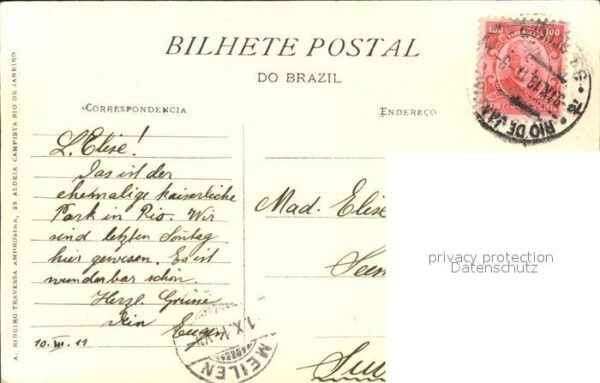 BILHETE POSTAL
DO BRAZIL
CORRESPONDENCIA
ENDEREÇO
L. Elise!
Das ist der
ehemalige kaiserliche
Park in Rio. Wir
sind letzten Sontag
hier gewesen. Es ist
wunderbar schön.
Herzl. Grüsse
Dein Eugen
10. III. 11
Mad. Elise
Seen
A. RIBEIRO TRAVESSA AMBROSINA, 26 ALDEIA CAMPISTA RIO DE JANEIRO
100
100
RIO DE JAN
MEILEN
privacy protection
Datenschutz